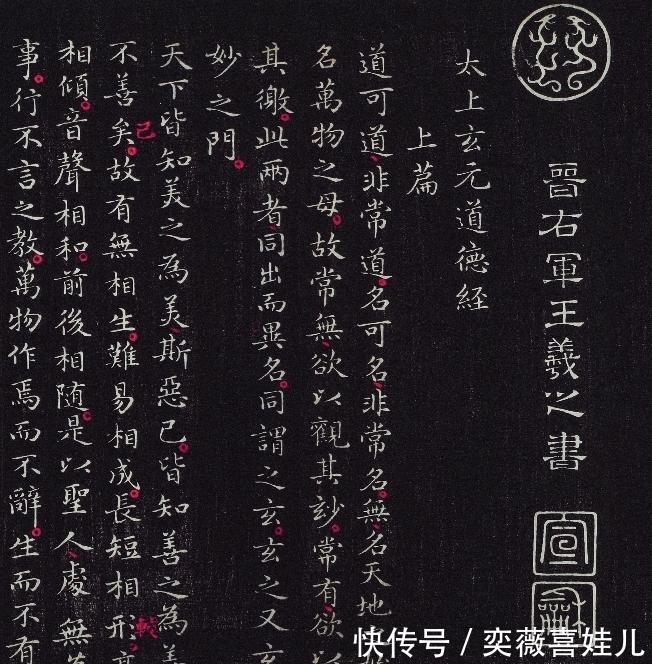 晉右軍王羲之書
宣
太上玄元道德経
上篇
道可道非常道名可名非常名無名天地
名萬物之母故常無欲以觀其妙常有欲以
其徼此两者同出而異名同謂之玄玄之又玄
妙之門
天下皆知美之為美斯惡已皆知善之為
不善矣故有無相生難易相成長短相形
已
相傾音聲相和前後相随是以聖人處無
事行不言之教萬物作焉而不辭生而不有
快传号 / 奕薇喜娃儿